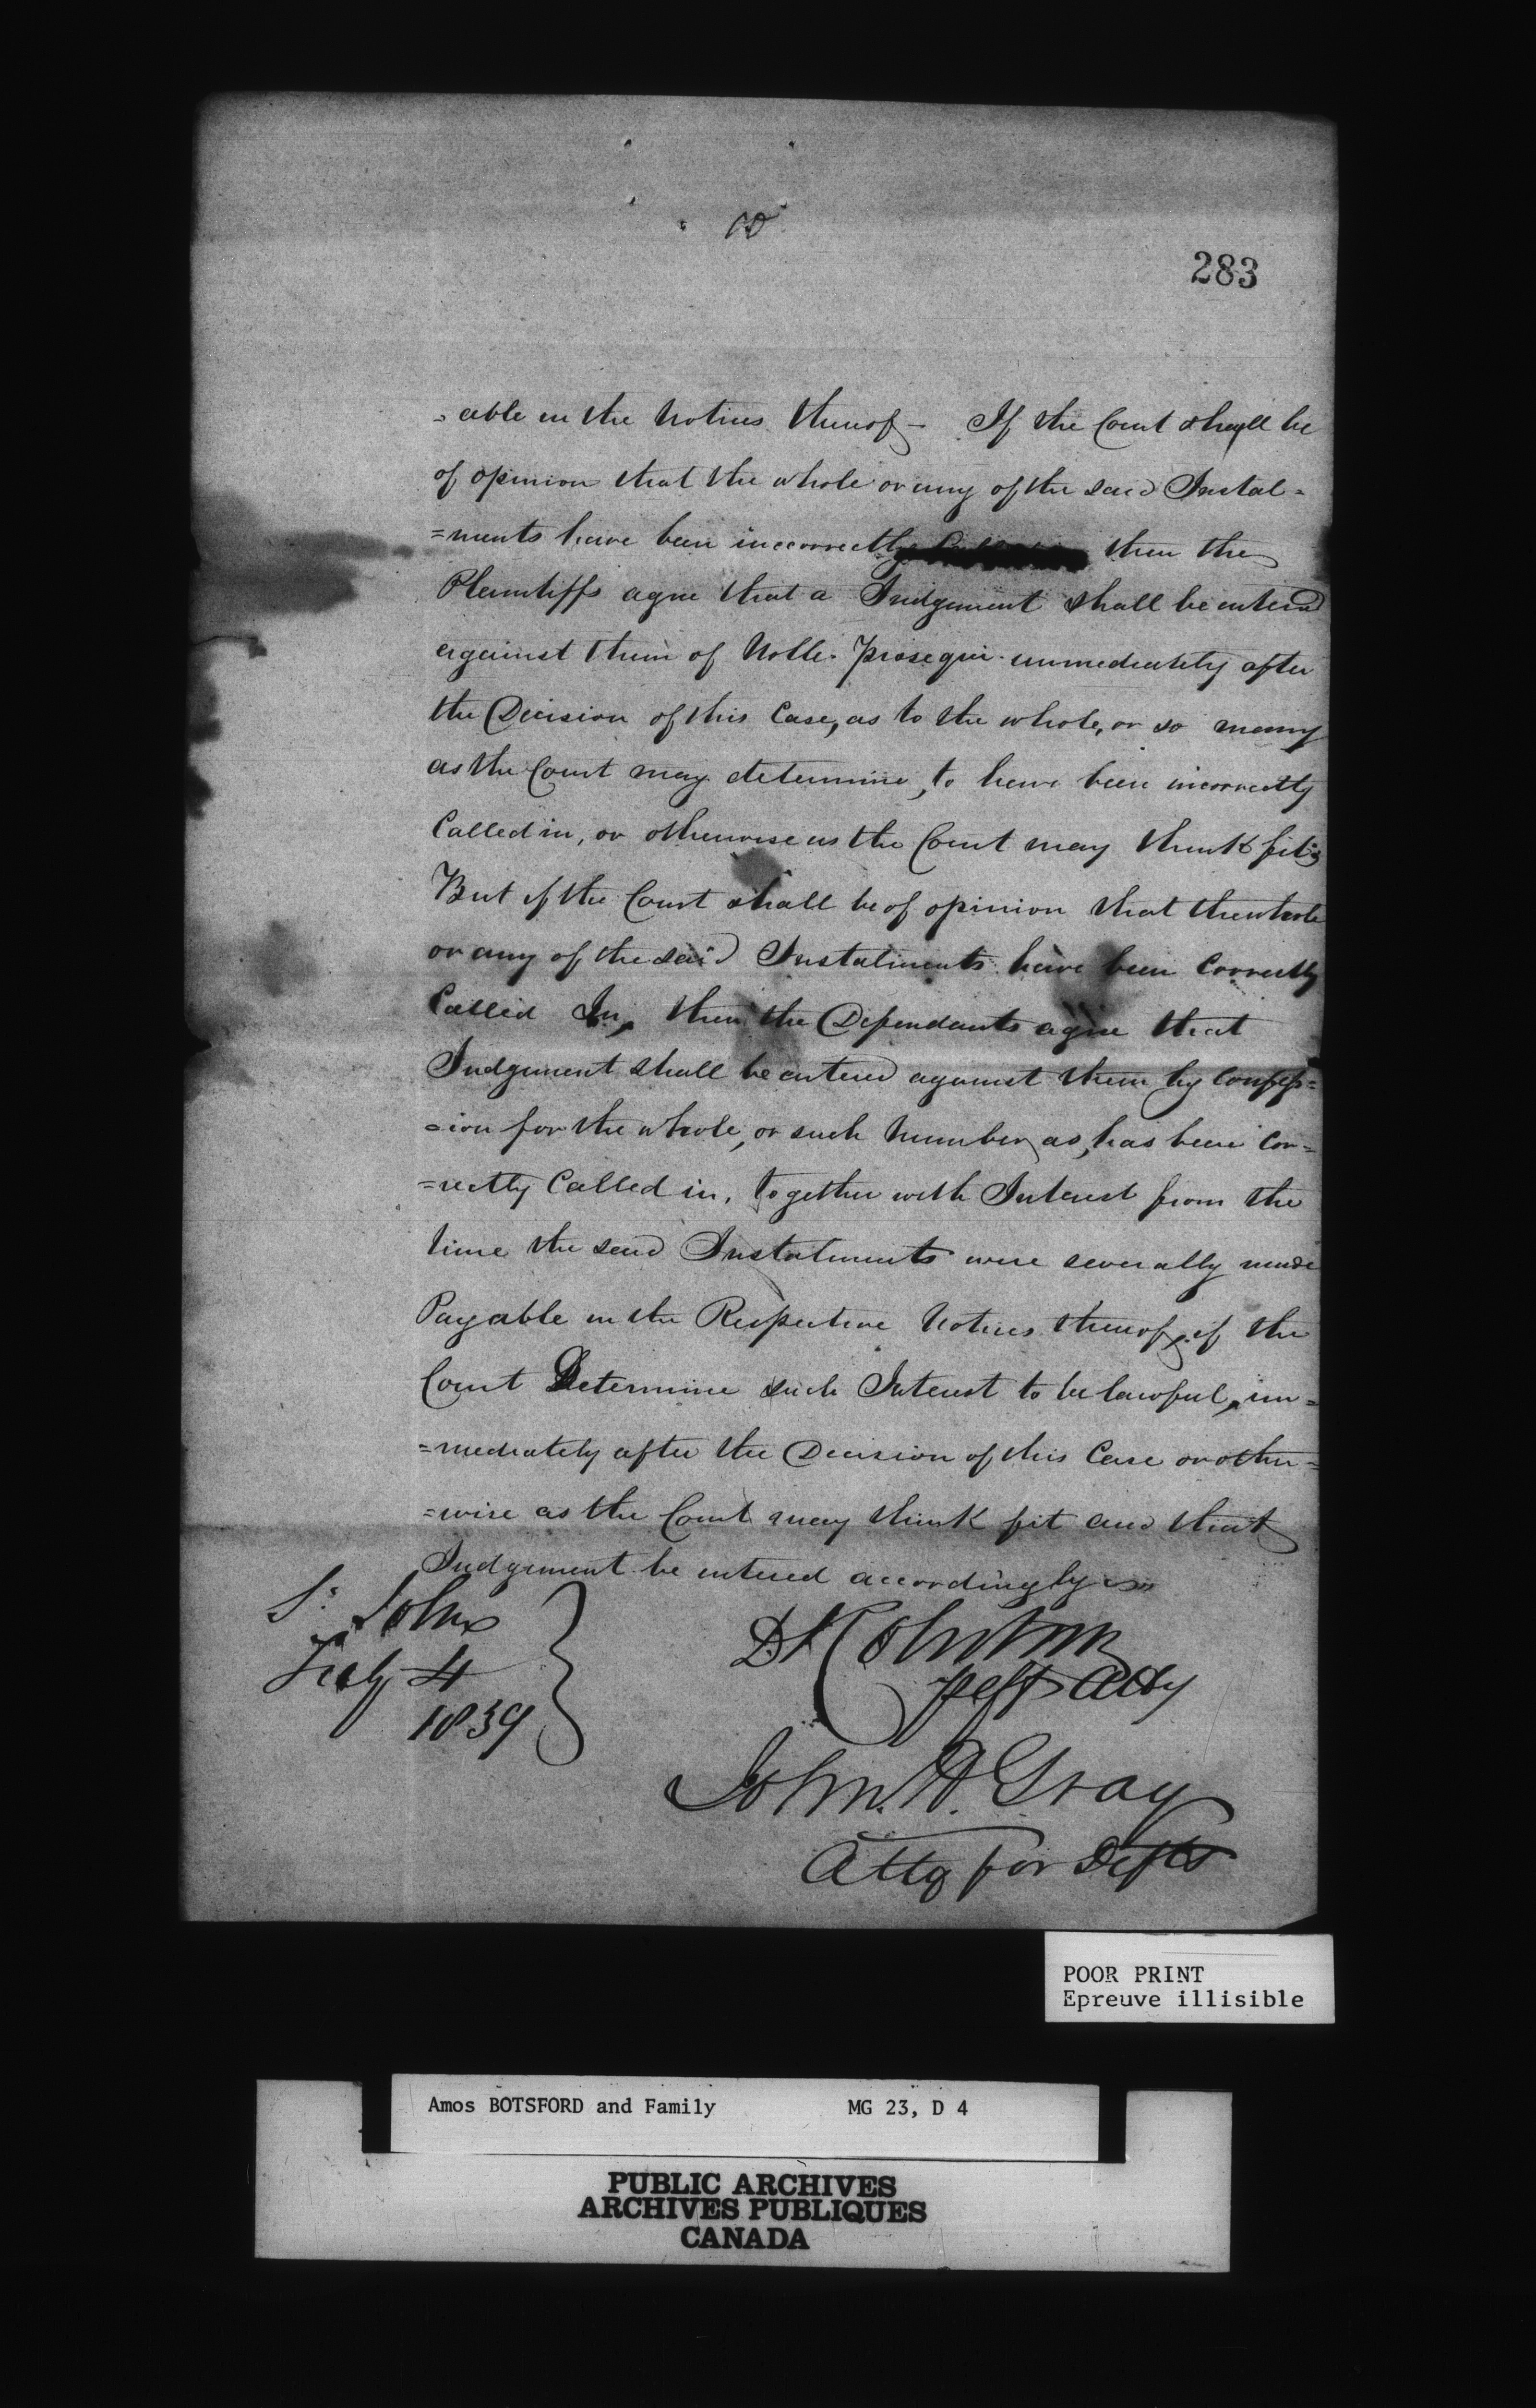 10
283
= able in the Notices thereof – If the Court shall be
of opinion that the whole or any of the said Instal=
=ments have been incorrectly then the
Plaintiffs agree that a Judgement shall be entered
against them of Nolle. Prosequi immediately after
the Decision of this Case, as to the whole, or so many
as the Court may determine, to have been incorrectly
Called in, or otherwise as the Court may think fit;
But if the Court shall be of opinion that the whole
or any of the said Instalments have been Correctly
Called In, then the Defendants agree that
Judgement shall be entered against them by Confess=
=ion for the whole, or such Number, as, has been Cor=
=rectly Called in, together with Interest from the
time the said Instalments were severally made
Payable in the Respective Notices thereof, if the
Court Determine such Interest to be lawful, im=
=mediately after the Decision of this Case or other=
=wise as the Court may think fit and that
Judgement be entered accordingly
St. John
July 4
1839
Plff Atty
John. H. Gray
Atty for Defts
POOR PRINT
Epreuve illisible
Amos BOTSFORD and Family MG 23, D 4
PUBLIC ARCHIVES
ARCHIVES PUBLIQUES
CANADA